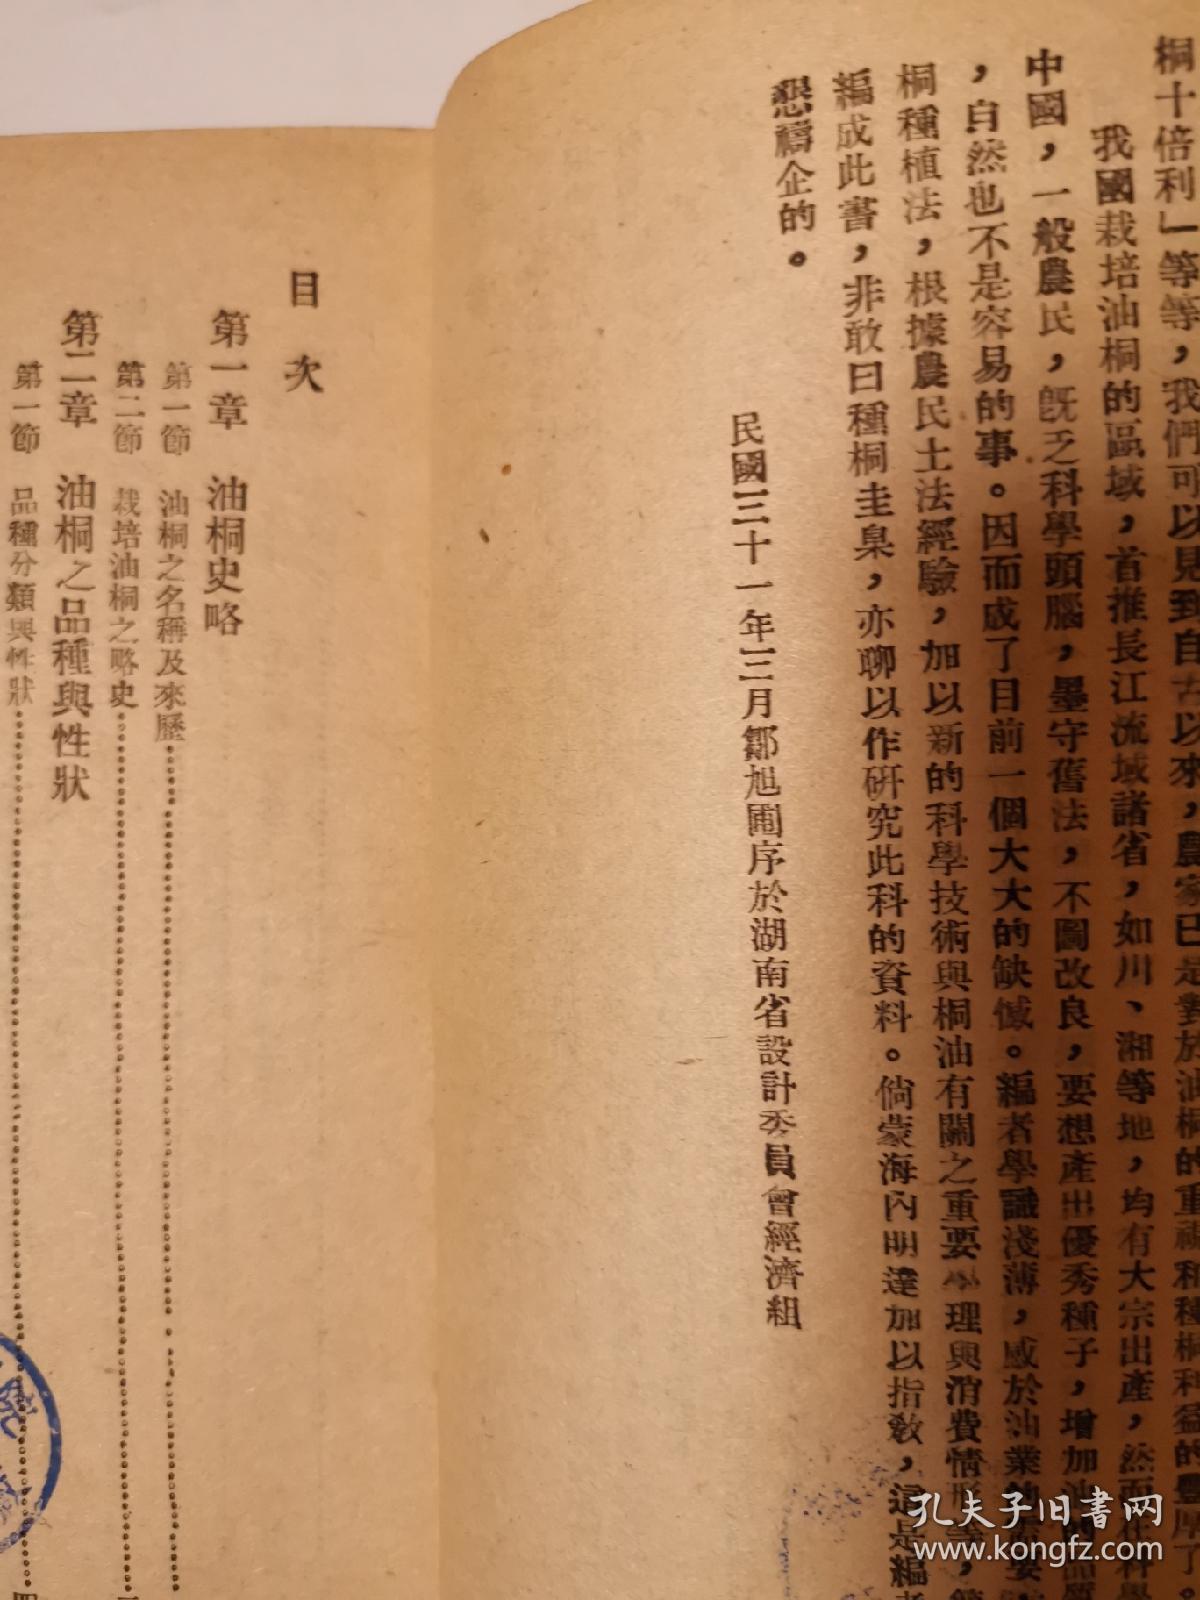 桐十倍利」等等，我們可以見到自古以來，農家已是對於油桐的重視和種桐利益的豐厚了。
我國栽培油桐的區域，首推長江流域諸省，如川、湘等地，均有大宗出產，然而在科學
中國，一般農民，既乏科學頭腦，墨守舊法，不圖改良，要想產出優秀種子，增加油
，自然也不是容易的事。因而成了目前一個大大的缺憾。編者學識淺薄，感於油業的
桐種植法，根據農民土法經驗，加以新的科學技術與桐油有關之重要學理與消費情形等，
編成此書，非敢曰種桐圭臬，亦聊以作研究此科的資料。倘蒙海內明達加以指教，這是編者
懇禱企的。
民國三十一年三月鄒旭圃序於湖南省設計委員會經濟組
目次
第一章 油桐史略
第一節 油桐之名稱及來歷
第二節 栽培油桐之略史
第二章 油桐之品種與性狀
第一節 品種分類與性狀
四
孔夫子旧书网
www.kongfz.com